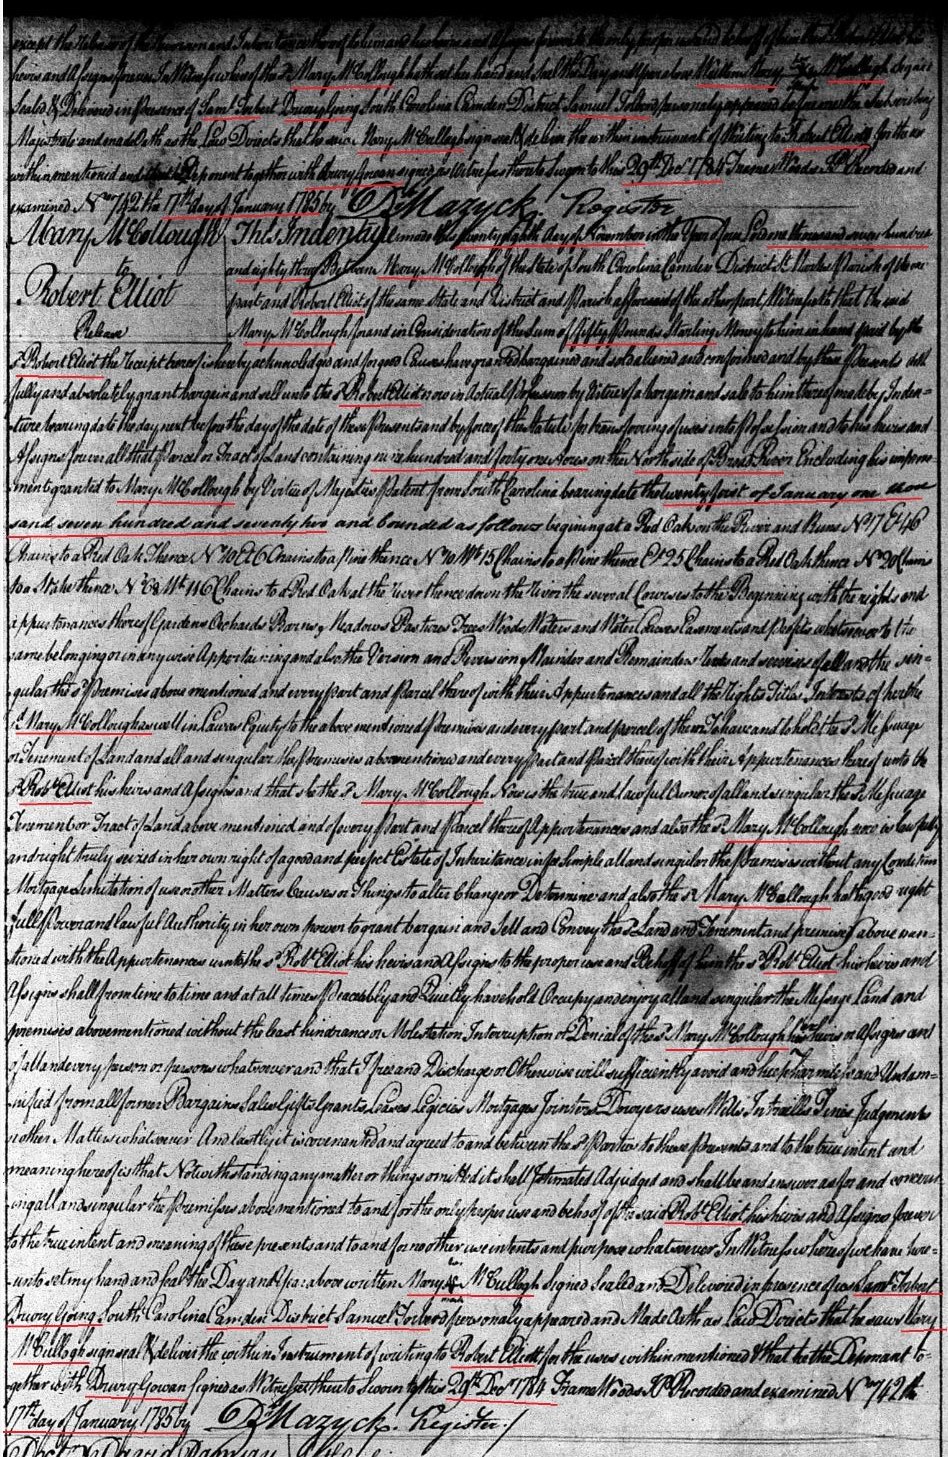 heirs and Assigns forever In Witness whereof the sd Mary McCollough hath set her hand and seal the Day and Year above Written Mary her mark McCullogh Signed
Sealed & Delivered in Presence of Saml Torbert Drury Going South Carolina Camden District Samuel Torberd personally appeared before me the subscribing
Majistrate and made Oath as the Law Directs that he saw Mary McCullogh sign seal & deliver the within instrument of Writing to Robert Elliot for the use
within mentioned and Deponent together with drury gowan signed as Witnesses thereto sworn to this 29th Decr 1784 Recorded and
examined No 742 the 17th day of January 1785 by D Mazyck Register
Mary McCollough
to
Robert Elliot
Release
This Indenture made this twenty eighth day of November in the Year of our Lord one thousand seven hundred
and eighty three Between Mary McCollough of the State of South Carolina Camden District St Marks Parish of the one
part and Robert Elliot of the same State and District and Parish aforesaid of the other part Witnesseth that the said
Mary McCollough for and in Consideration of the Sum of fifty pounds Starling Money to him in hand paid by the
sd Robert Elliot the receipt hereof is hereby acknowledged and bargained and sold aliened and confirmed and by these Presents doth
fully and absolutely grant bargain and sell unto the sd Robert Elliot now in actual possession by Virtue of a bargain and sale to him thereof made by Inden-
ture bearing date the day next before the day of the date of these presents and by force of the Statute for transferring of uses into possession and to his heirs and
Assigns forever all that Parcel or Tract of Land containing hundred and forty one Acres on the North side of Broad River Encluding his improve-
ment granted to Mary McCollough by Virtue of Majesties Patent from South Carolina bearing date the twenty first of January one thou
sand seven hundred and seventy two and bounded as follows begining at a Red Oak on the River and Runs No 17 Et 46
Chains to a Red Oak Thence No 10 Chains to a Pine thence No 70 Wt 15 Chains to a Pine thence Et 25 Chains to a Red Oak thence No 20 Chains
to a Stake thence No 68 Wt 46 Chains to a Red Oak at the River thence down the River the several Courses to the Beginning with the rights and
appurtenances thereof Gardens Orchards Barns Meadows Pastures Trees Woods Waters and Water Courses Easments and Profits whatsoever to the
same belonging or in any wise Appertaining and also the Version and Reversion Mainder and Remainder Rents and services of all and the sin-
gular the sd Premises above mentioned and every Part and Parcel thereof with their Appurtenances and all the Rights Titles Interests of her the
sd Mary McCollough as well in Law as Equity to the above mentioned Premises and every part and parcel of them To have and to hold the sd Messuage
or Tenement of Land and all and singular the Premises above mentioned and every Part and Parcel thereof with their Appurtenances thereof unto the
sd Robt Elliot his heirs and Assigns and that she the sd Mary McCollough Now is the true and lawful Owner of all and singular the sd Messuage
Tenement or Tract of Land above mentioned and of every Part and Parcel thereof Appurtenances and also the sd Mary McCollough now is lawfully
and right truly seized in her own right of a good and perfect Estate of Inheritance in fee simple all and singular the Premises without any Condition
Mortgage Limitation of use or other Matters Causes or Things to alter Change or Determine and also the sd Mary McCallough hath good right
full Power and lawful Authority in her own power to grant bargain and Sell and Convey the sd Land and Tenement and premises above men-
tioned with the Appurtenances unto the sd Robt Elliot his heirs and Assigns to the proper use and Behoof of him the sd Robt Elliot his heirs and
Assigns shall from time to time and at all times Peaceably and Quietly have hold Occupy and enjoy all and singular the Messuage Land and
premises above mentioned without the least hindrance or Molestation Interruption or Denial of the sd Mary McCollough her heirs or Assigns and
of all and every person or persons whatsoever and that I free and Discharge or Otherwise will sufficiently and keep Harmless and Undam-
nified from all former Bargains Sales Gifts Grants Leases Legicies Mortgages Jointers Dowyers uses Wills Intraills Fines Judgements
or other Matters whatsoever And lastly it is covenanted and agreed to and between the sd Parties to these Presents and to the true intent and
meaning hereof is that Notwithstanding any matter or things omitted it shall Estimated Adjudged and shall be and insure as for and concern
ing all and singular the Premisses above mentioned to and for the only proper use and behoof of the said Robt Elliot his heirs and Assigns forever
to the true intent and meaning of these presents and to and for no other use intents and purpose whatsoever In Witness whereof we have here-
unto set my hand and seal the Day and Year above written Mary her mark McCullogh Signed Sealed and Delivered in presence of us Saml Torbert
Drury Going South Carolina Camden District Samuel Torberd personally appeared and Made Oath as Law Directs that he saw Mary
McCullogh sign seal & deliver the within Instrument of writing to Robert Elliott for the uses within mentioned & that he the Deponant to-
gether with Drury Gowan signed as Witnesses thereto Sworn to this 29th Decr 1784 Recorded and examined No 742 the
17th day of January 1785 by D Mazyck. Register